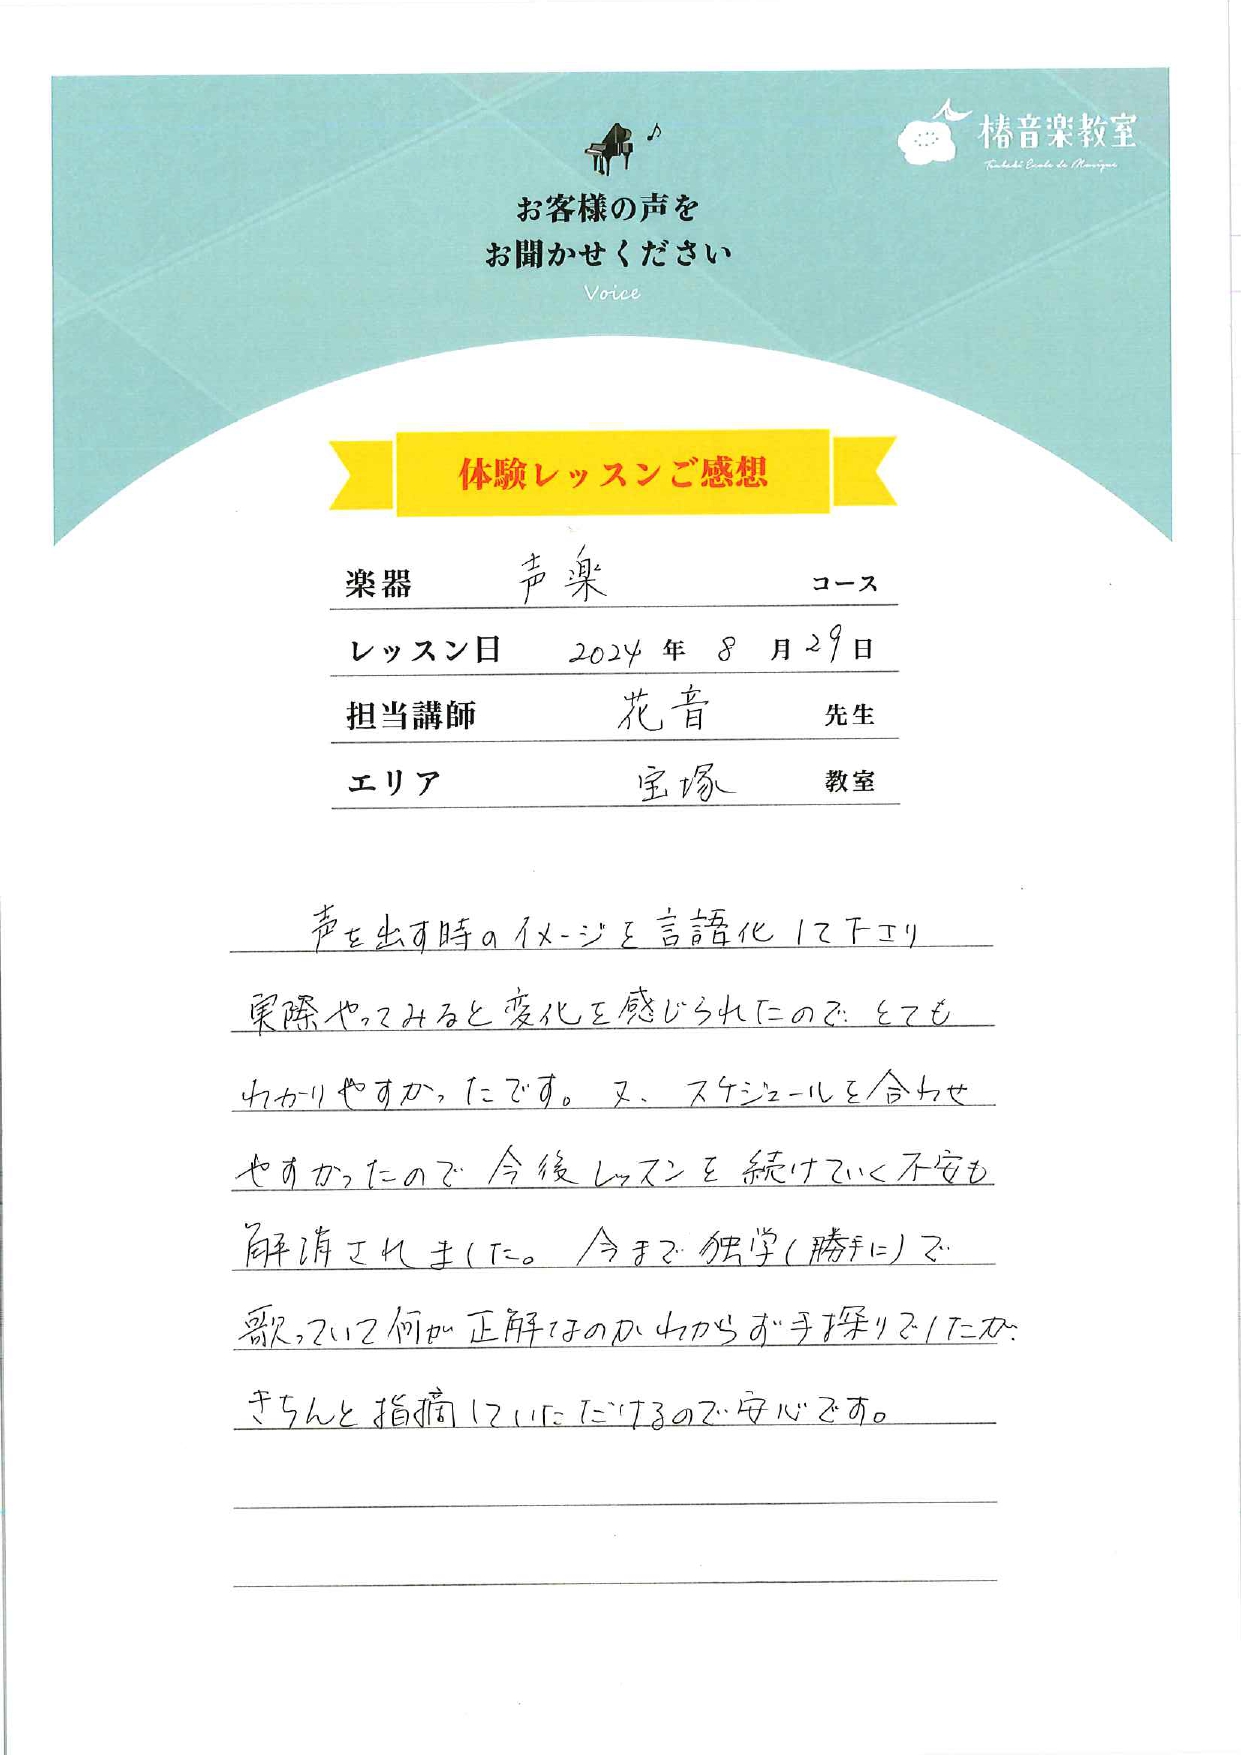 椿音楽教室
Tsubaki Ecole de Musique
お客様の声を
お聞かせください
Voice
体験レッスンご感想
楽器 声楽 コース
レッスン日 2024 年 8 月 29 日
担当講師 花音 先生
エリア 宝塚 教室
声を出す時のイメージを言語化して下さり
実際やってみると変化を感じられたので とても
わかりやすかったです。又、スケジュールを合わせ
やすかったので 今後レッスンを続けていく不安も
解消されました。 今まで独学(勝手に)で
歌っていて何が正解なのかわからず手探りでしたが
きちんと指摘していただけるので安心です。